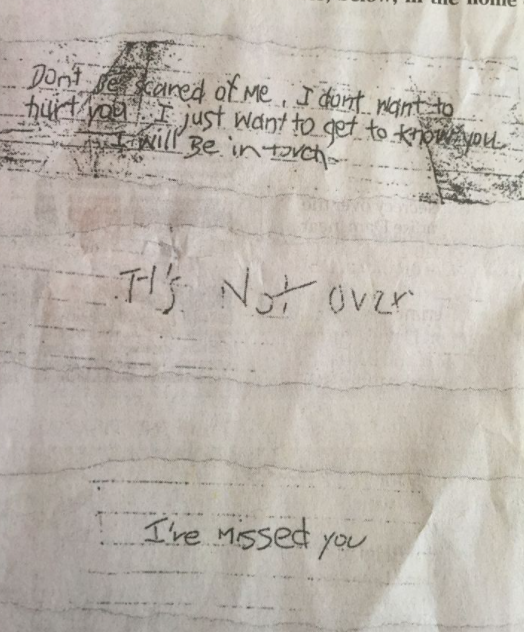 below, in the home
Don't Be scared of Me. I dont want to
hurt you! I just want to get to know you
I will Be in touch.
It's Not over
I've Missed you